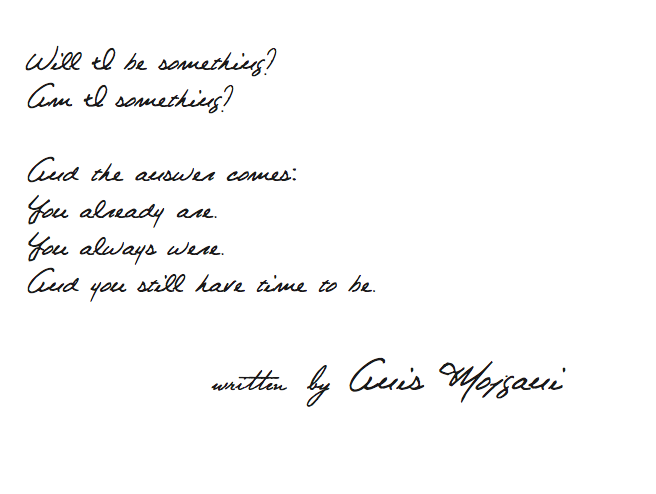 Will I be something?
Am I something?
And the answer comes:
You already are.
You always were.
And you still have time to be.
written by Anis Mojgani